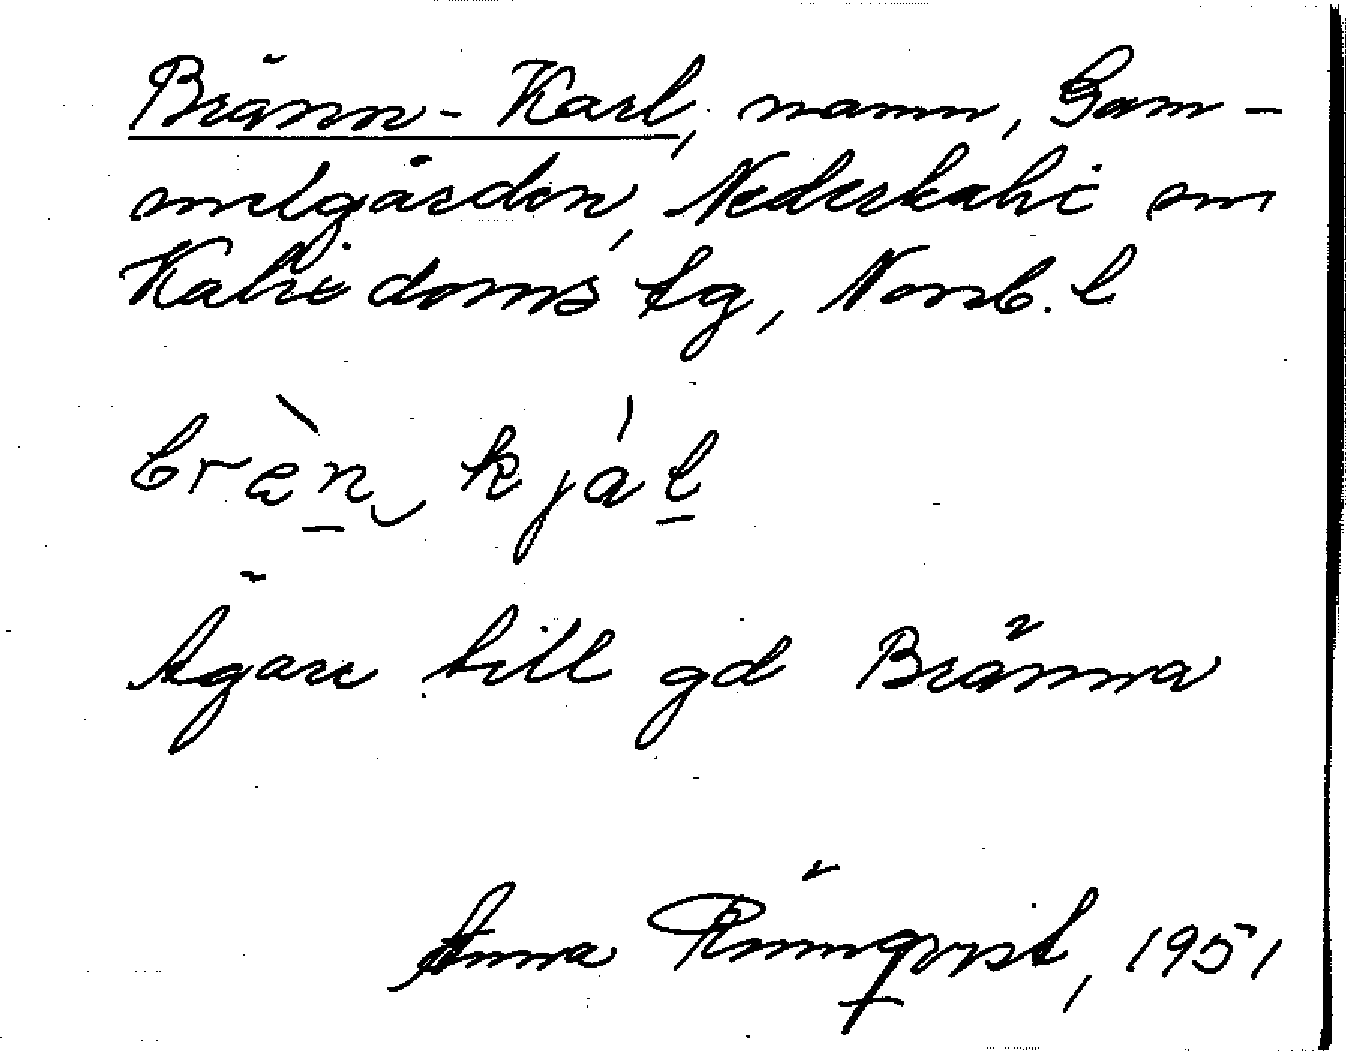 Bränn-Karl, namn, Gam-
melgården, Nederkalix sn
Kalix doms tg, Norrb. l
brèn kjál
Ägare till gd Bränna
Anna Rönnqvist, 1951